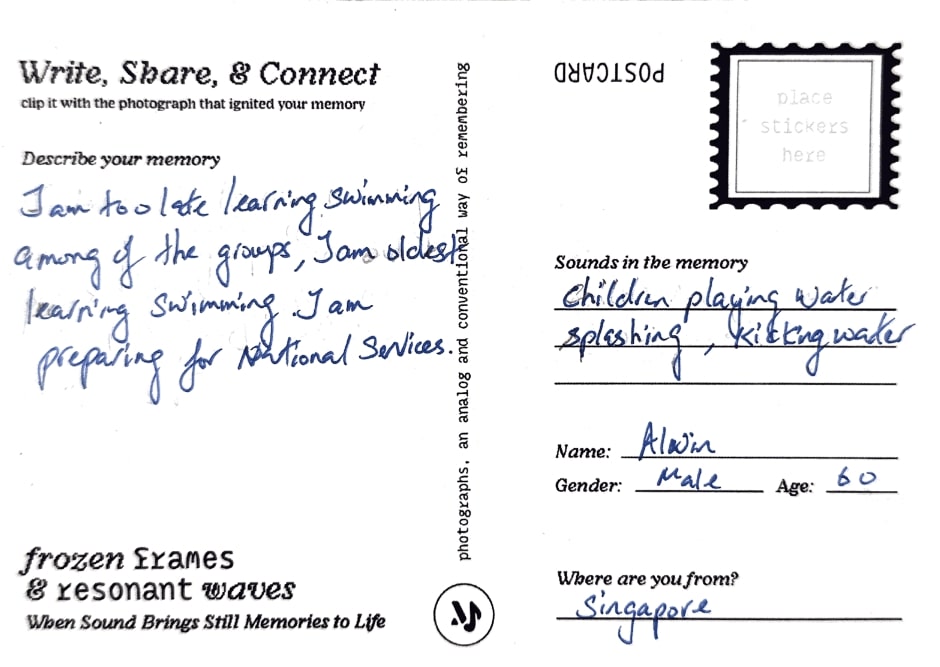 Write, Share, & Connect
clip it with the photograph that ignited your memory
Describe your memory
I am too late learning swimming
among of the groups, I am oldest
learning swimming. I am
preparing for National Services.
frozen frames
& resonant waves
When Sound Brings Still Memories to Life
photographs, an analog and conventional way of remembering
POSTCARD
place
stickers
here
Sounds in the memory
Children playing water
splashing, kicking water
Name: Alwin
Gender: Male Age: 60
Where are you from?
Singapore